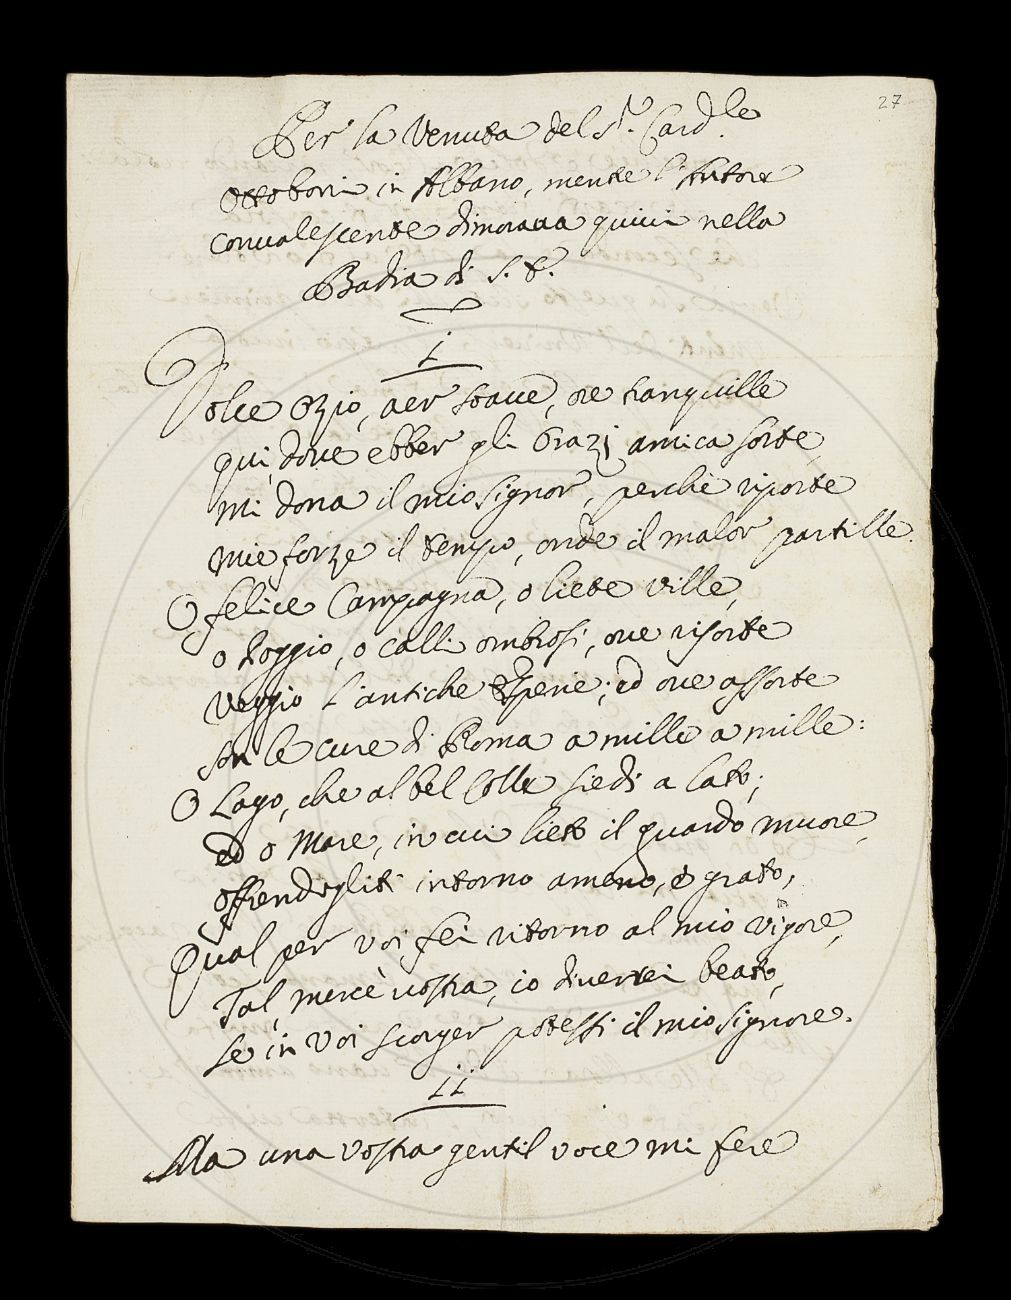 27
Per la Venuta del Sr. Cardle.
Ottoboni in Albano, mentre l'Autore
convalescente dimoraua quiui nella
Badia di S. P.
i
Dolce Ozio, aer soaue, ore tranquille
qui, doue ebber gli Orazj amica sorte,
mi dona il mio Signor, perchè riporte
mie forze il tempo, onde il malor partille.
O felice Campagna, o liete ville,
o Poggio, o calli ombrosi, oue risorte
veggio l'antiche Esperie; ed oue assorte
son le cure di Roma a mille a mille:
O Lago, che al bel Colle siedi a lato;
ed o Mare, in cui lieto il guardo muore,
offrendogliti intorno ameno, e grato;
Qual per voi fei ritorno al mio vigore,
Tal, mercè vostra, io diverrei beato,
se in voi scorger potessi il mio Signore.
ii
Ma una vostra gentil voce mi fere